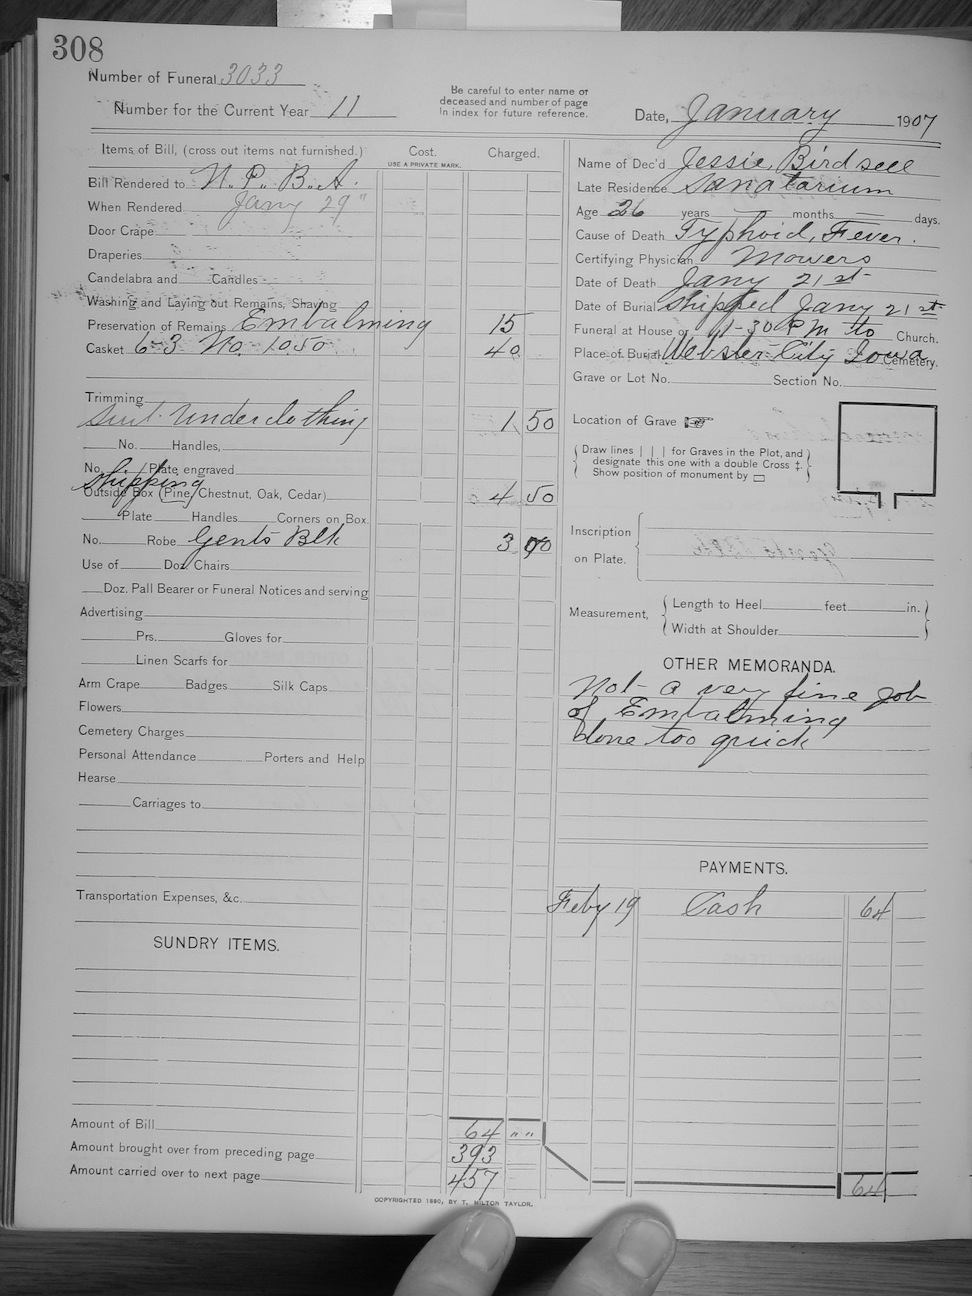 308
Number of Funeral 3033
Number for the Current Year 11
Be careful to enter name of
deceased and number of page
in index for future reference.
Date, January 1907
Items of Bill, (cross out items not furnished.)
Cost.
USE A PRIVATE MARK.
Charged.
Bill Rendered to N. P. B. A.
When Rendered Jany 29"
Door Crape
Draperies
Candelabra and Candles
Washing and Laying out Remains, Shaving
Preservation of Remains Embalming 15
Casket 6-3 No. 1050 40
Trimming
Suit Underclothing 1 50
No. Handles,
No. Plate engraved
Shipping
Outside Box (Pine, Chestnut, Oak, Cedar) 4 50
Plate Handles Corners on Box
No. Robe Gents Blk 3 00
Use of Doz. Chairs
Doz. Pall Bearer or Funeral Notices and serving
Advertising
Prs. Gloves for
Linen Scarfs for
Arm Crape Badges Silk Caps
Flowers
Cemetery Charges
Personal Attendance Porters and Help
Hearse
Carriages to
Transportation Expenses, &c.
SUNDRY ITEMS.
Amount of Bill 64 " "
Amount brought over from preceding page 393
Amount carried over to next page 457
Name of Dec'd Jessie Birdsell
Late Residence Sanatarium
Age 26 years — months — days.
Cause of Death Typhoid Fever.
Certifying Physician Mowers
Date of Death Jany 21st
Date of Burial shipped Jany 21st
Funeral at House or 11-30 PM to Church.
Place of Burial Webster City Iowa Cemetery.
Grave or Lot No. Section No.
Location of Grave ☞
Draw lines | | | for Graves in the Plot, and
designate this one with a double Cross ‡.
Show position of monument by ▭
Inscription
on Plate.
Measurement,
Length to Heel feet in.
Width at Shoulder
OTHER MEMORANDA.
Not a very fine Job
of Embalming
done too quick
PAYMENTS.
Feby 19 Cash 64
64
COPYRIGHTED 1890, BY T. MILTON TAYLOR.